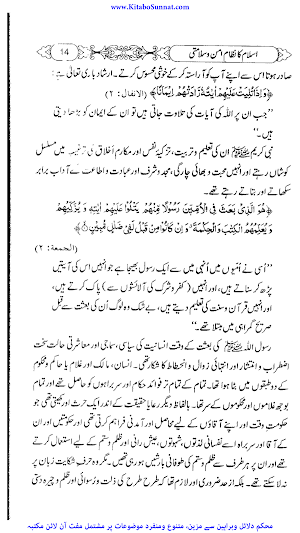 www.KitaboSunnat.com
اسلام کا نظام امن و سلامتی
14
صادر ہوتا اس سے اپنے آپ کو آراستہ کر کے خوشی محسوس کرتے۔ ارشاد باری تعالیٰ ہے:
﴿وَإِذَا تُلِيَتْ عَلَيْهِمْ آيَتُهُ زَادَتْهُمْ إِيْمَانًا﴾ (الانفال: ۲)
”جب ان پر اللہ کی آیات کی تلاوت جاتی ہیں تو ان کے ایمان کو بڑھا دیتی
ہیں۔“
نبی کریم ﷺ ان کی تعلیم و تربیت، تزکیہ نفس اور مکارم اخلاق کی ترغیب میں مسلسل
کوشاں رہتے اور انہیں محبت و بھائی چارگی، مجد و شرف اور عبادت و اطاعت کے آداب برابر
سکھاتے اور بتاتے رہتے تھے۔
﴿هُوَ الَّذِي بَعَثَ فِي الْأُمِّيّنَ رَسُوْلًا مِّنْهُمْ يَتْلُوْا عَلَيْهِمْ ايْتِهِ وَ يُزَكِّيْهِمْ
وَ يُعَلِّمُهُمُ الْكِتٰبَ وَ الْحِكْمَةَ وَ اِنْ كَانُوْا مِنْ قَبْلُ لَفِيْ ضَلٰلٍ مُّبِيْنٍ﴾
(الجمعة: ۲)
”اسی نے اُمیوں میں اُنہی میں سے ایک رسول بھیجا ہے جو انہیں اس کی آیتیں
پڑھ کر سناتے ہیں، اور انہیں (کفر و شرک کی آلائشوں سے) پاک کرتے ہیں،
اور انہیں قرآن و سنت کی تعلیم دیتے ہیں، بے شک وہ لوگ اُن کی بعثت سے قبل
صریح گمراہی میں مبتلا تھے۔“
رسول اللہ ﷺ کی بعثت کے وقت انسانیت کی سیاسی، سماجی اور معاشرتی حالت سخت
اضطراب و انتشار اور انتہائی زوال و انحطاط کا شکار تھی۔ انسان، مالک اور غلام یا حاکم و محکوم
کے دو طبقوں میں بٹا ہوا تھا۔ تمام کے تمام تر فوائد حکام اور سربراہوں کو حاصل تھے اور تمام
بوجھ غلاموں اور محکوموں کے سر تھا۔ بالفاظ دیگر رعایا حقیقت کے اندر ایک حرث اور کھیتی تھی جو
حکومتِ وقت اور اپنے آقاؤں کے لیے محاصل اور آمدنی فراہم کرتی تھی اور حکومتیں اور ان
کے آقا اور سربراہ اسے نفسانی لذتوں، شہوتوں، عیش رانی اور ظلم و ستم کے لیے استعمال کرتے
تھے اور ان پر ہر طرف سے ظلم و ستم کی طوفانی بارشیں ہو رہی تھیں۔ مگر وہ حرفِ شکایت زبان پر
نہ لا سکتے تھے۔ بلکہ از حد ضروری اور لازم تھا کہ طرح طرح کی ذلت و رسوائی اور ظلم و چیرہ دستی
محکم دلائل وبراہین سے مزین، متنوع ومنفرد موضوعات پر مشتمل مفت آن لائن مکتبہ